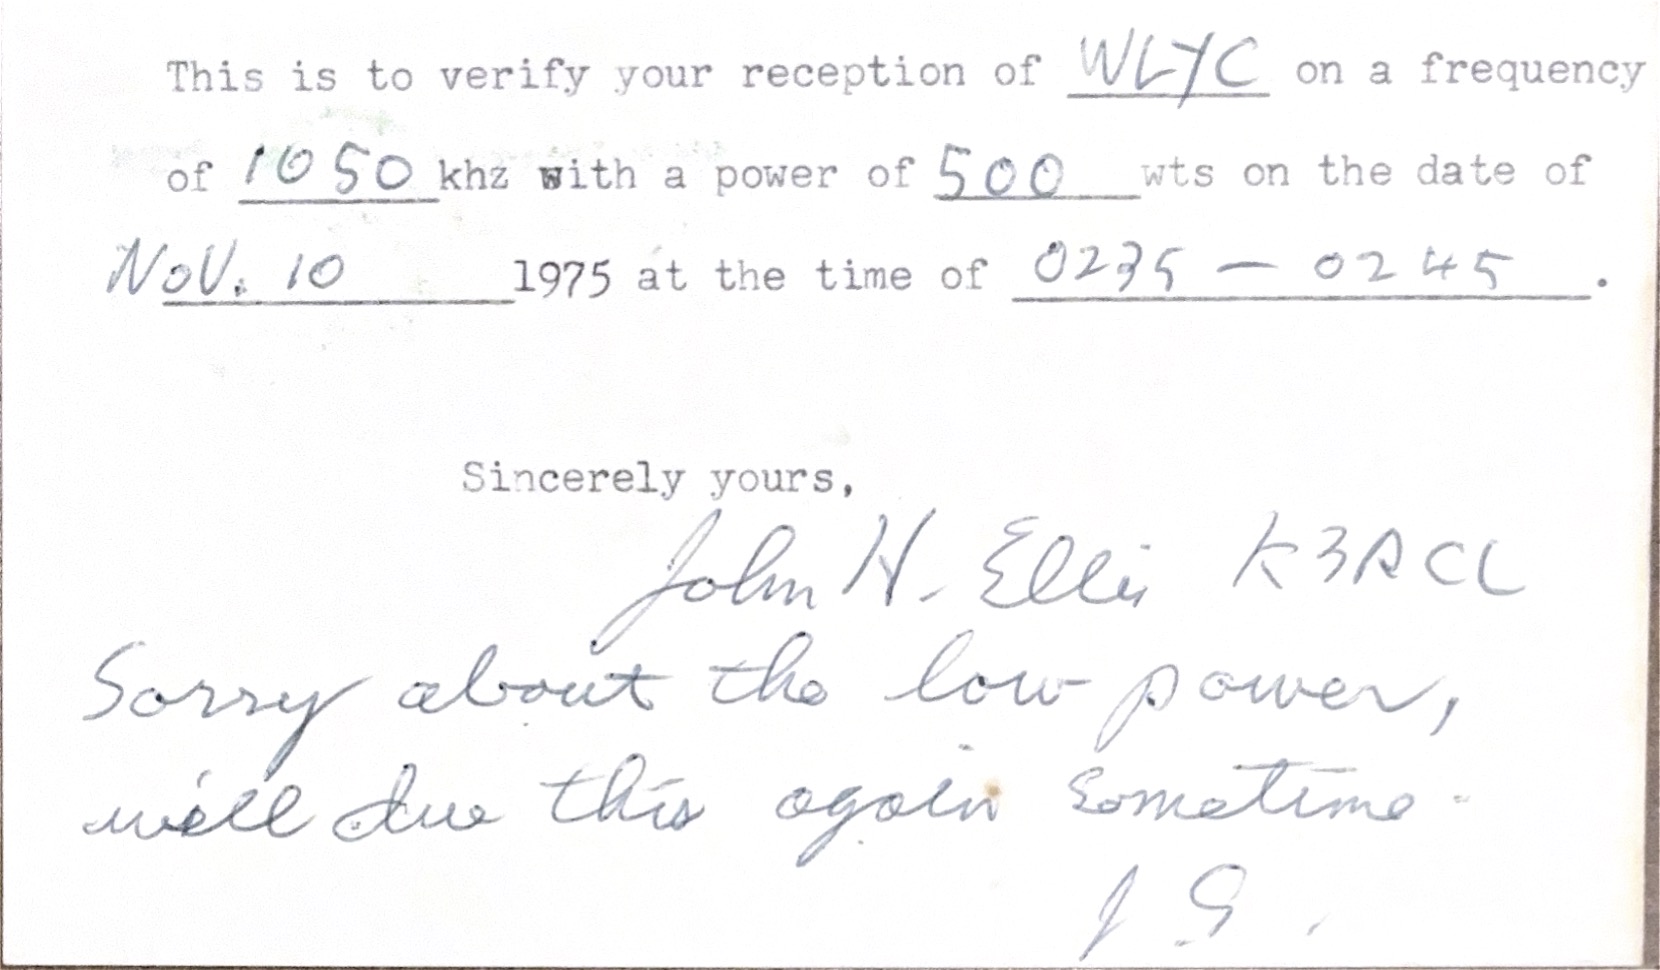 This is to verify your reception of WLYC on a frequency
of 1050 khz with a power of 500 wts on the date of
Nov. 10 1975 at the time of 0235 — 0245.
Sincerely yours,
John H. Ellis K3ACL
Sorry about the low power,
will due this again sometime.
J E.